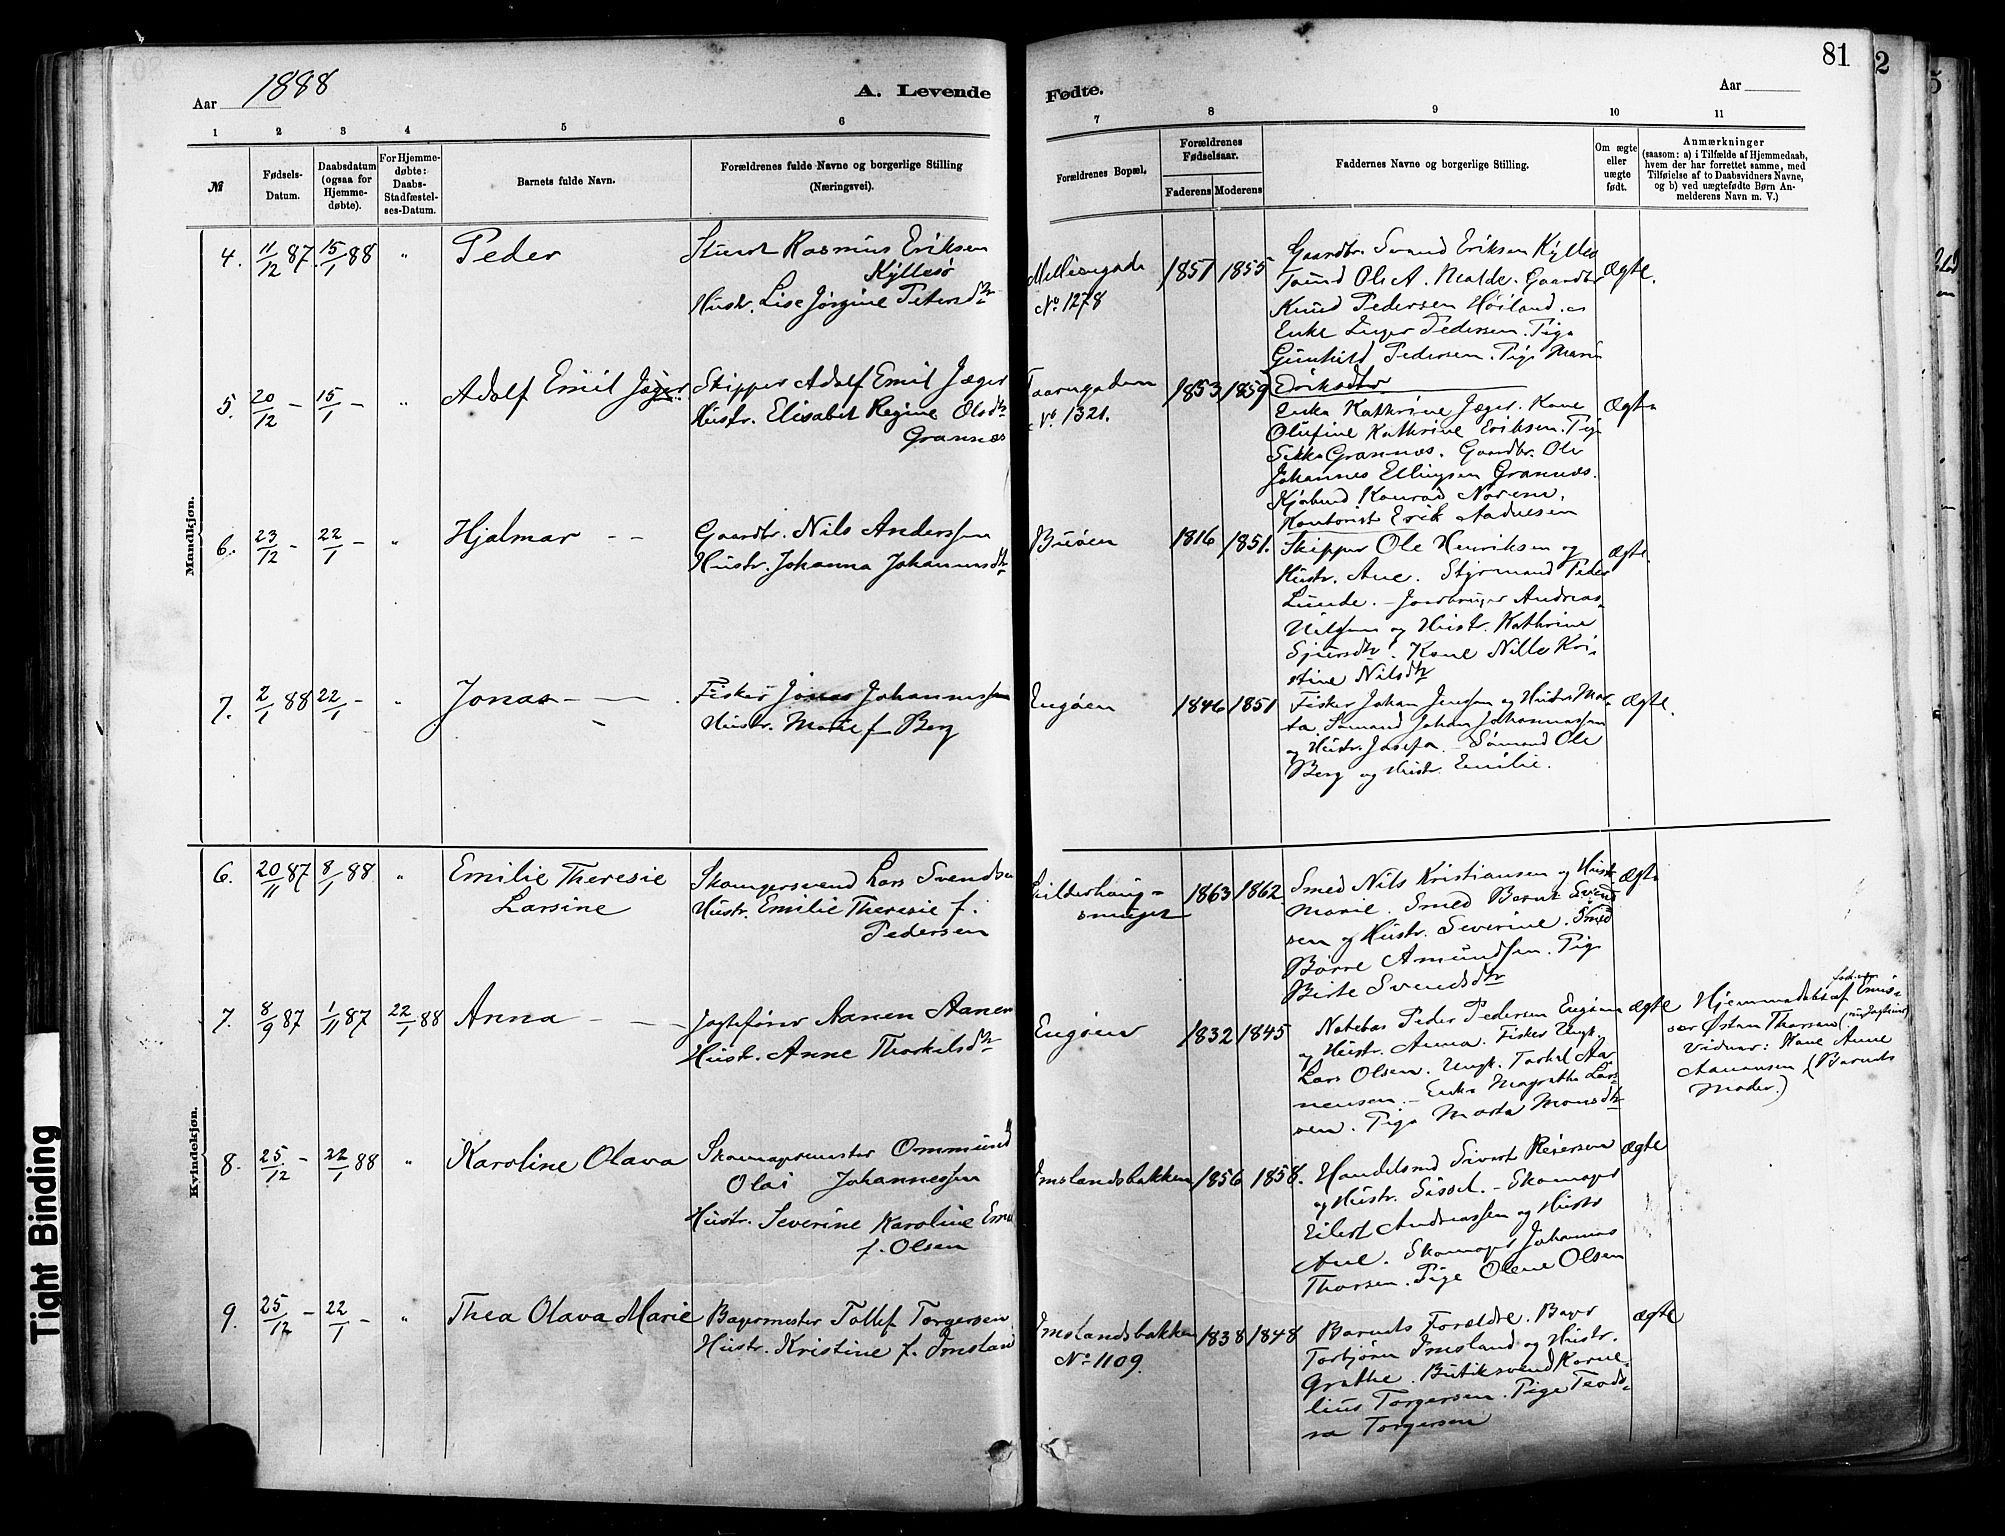 81
2
5
Aar 1888
A. Levende
Fødte.
Aar
1 2 3 4 5 6 7 8 9 10 11
№
Fødsels-
Datum.
Daabsdatum
(ogsaa for
Hjemme-
døbte).
For Hjemme-
døbte:
Daabs-
Stadfæstel-
ses-Datum.
Barnets fulde Navn.
Forældrenes fulde Navne og borgerlige Stilling
(Næringsvei).
Forældrenes Bopæl.
Forældrenes
Fødselsaar.
Faderens Moderens
Faddernes Navne og borgerlige Stilling.
Om ægte
eller
uægte
født.
Anmærkninger
(saasom: a) i Tilfælde af Hjemmedaab,
hvem der har forrettet samme, med
Tilføielse af to Daabsvidners Navne,
og b) ved uægtefødte Børn An-
melderens Navn m. V.)
Mandkjøn.
4. 11/12 87. 15/1 88 „ Peder
Rasmus Eriksen
Kyllesø
Hustr. Lise Jørgine Petersdtr
No 1278
1851 1855
Gaardbr. Svend Eriksen Kylles
Ole A. Malde. Gaardbr
Knud Pedersen Høiland.
Enke Inger Pedersen. Pige
Gunhild Pedersen. Pige Mari
Eriksdtr
Ægte.
5. 20/12 – 15/1 – „ Adolf Emil Jæger.
Skipper Adolf Emil Jæger
Hustr. Elisabet Regine Olsdtr
Grannæs
No. 1321.
1853 1859
Enke Kathrine Jæger. Kone
Olufine Kathrine Eriksen. Pige
Sikke Grannæs. Gaardbr. Ole
Johannes Ellingsen Grannæs.
Konrad Norem.
Kontorist Erik Aadnesen
Ægte
6. 23/12 – 22/1 – „ Hjalmar – –
Gaardbr. Nils Anderssen
Hustr. Johanna Johannesdtr
Buøen
1816 1851.
Skipper Ole Henriksen og
Hustr. Ane. Styrmand Peder
Lunde. – Jordbruger Andreas
Nilssen og Hustr. Kathrine
Sjursdtr. Kone Nille Kri-
stine Nilsdtr
Ægte.
7. 2/1 88 22/1 – „ Jonas – –
Fisker Jonas Johannessen
Hustr. Marie f. Berg
Engøen
1846 1851
Fisker Johan Jenssen og Hustr. Mar-
ta. Sømand Johan Johannessen
og Hustr. Josefa. – Sømand Ole
Berg og Hustr. Emilie.
Ægte.
Kvindekjøn.
6. 20/11 87 8/1 88 „ Emilie Theresie
Larsine
Skomagersvend Lars Svendsen
Hustr. Emilie Theresie f.
Pedersen
1863 1862.
Smed Nils Kristiansen og Hustr
Marie. Smed Bernt Svend
sen og Hustr. Severine. Smed
Børre Amundsen. Pige
Birte Svendsdtr
Ægte
7. 8/9 87 1/11 87 22/1 88 Anna – –
Jagtefører Aanen Aanen
Hustr. Anne Thorkilsdtr
Engøen
1832 1845
Notebas Peder Pedersen Engøen
og Hustr. Anna. Fisker Ungk.
Lars Olsen. Ungk. Torkel Aa-
nensen. – Enke Magrethe Lars-
sen. Pige Marta Monsdtr
Ægte
Hjemmedøbt af Emis-
sær Østen Thorsen
Vidner: Kone Anne
Aanensen (Barnets
Moder.)
8. 25/12 – 22/1 88 „ Karoline Olava
Skomagermester Ommund
Olai Johannessen
Hustr. Severine Karoline
f. Olsen
Imslandsbakken
1856 1858.
Handelsmd Sivert Reiersen
og Hustr. Sissel. – Skomager
Eilert Andreassen og Hustr
Ane. Skomager Johannes
Thorsen. Pige Olene Olsen
Ægte
9. 25/12 – 22/1 – „ Thea Olava Marie
Bagermester Tollef Torgersen
Hustr. Kristine f. Imsland
Imslandsbakken
No 1109.
1838 1848
Barnets Forældre. Bager
Torbjørn Imsland og Hustr.
Grethe. Butiksvend Korne-
lius Torgersen. Pige Teodo-
ra Torgersen
Ægte
Tight Binding